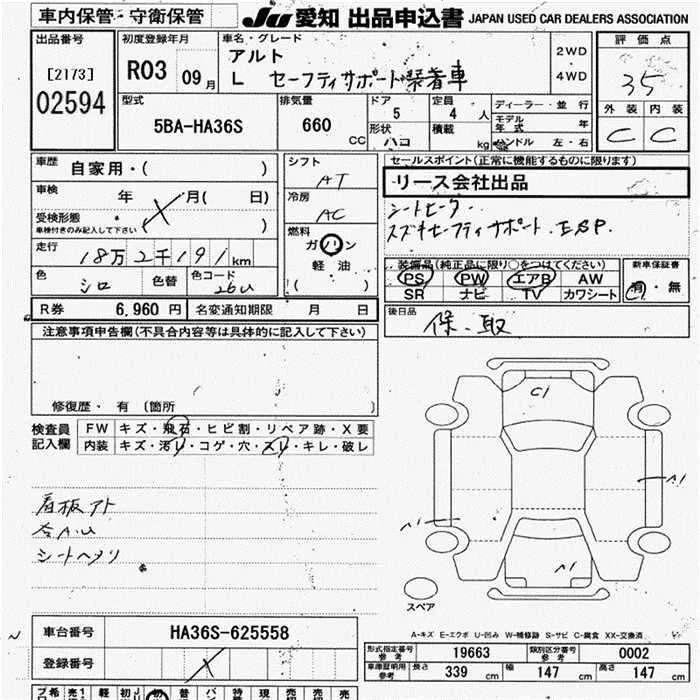 車内保管・守衛保管 JU 愛知 出品申込書 JAPAN USED CAR DEALERS ASSOCIATION
出品番号
[2173]
02594
初度登録年月
R03 09月
車名・グレード
アルト
L セーフティサポート装着車
2WD
4WD
評価点
35
外装 内装
C C
型式
5BA-HA36S
排気量
660 CC
ドア
5
形状
ハコ
定員
4人
積載
kg
ディーラー・並行
モデル年式 年
ハンドル 左・右
車歴 自家用・( )
車検 年 月( 日)
受検形態
車検付きのみ記入して下さい ( )
走行 18万2千191km
色 シロ 色替 色コード 26U
シフト
AT
冷房
AC
燃料
ガソリン
軽油
( )
セールスポイント(正常に機能するものに限ります)
リース会社出品
シートヒーター
スズキセーフティサポート ESP.
装備品(純正品に限り○をつけてください)
PS PW エアB AW
SR ナビ TV カワシート
新車保証書
有・無
R券 6,960円 名変通知期限 月 日
後日品
保、取
注意事項申告欄(不具合内容等は具体的に記入して下さい)
修復歴・有 (箇所 )
検査員記入欄
FW キズ・飛石・ヒビ割・リペア跡・X要
内装 キズ・汚レ・コゲ・穴・スレ・キレ・破レ
看板アト
シートヘタリ
C1
A1
A1
A1
スペア
A-キズ E-エクボ U-凹み W-補修跡 S-サビ C-腐食 XX-交換済
車台番号 HA36S-625558
登録番号
形式指定番号 参考 19663 類別区分番号 参考 0002
車庫証明用 参考 長さ 339 cm 幅 147 cm 高さ 147 cm